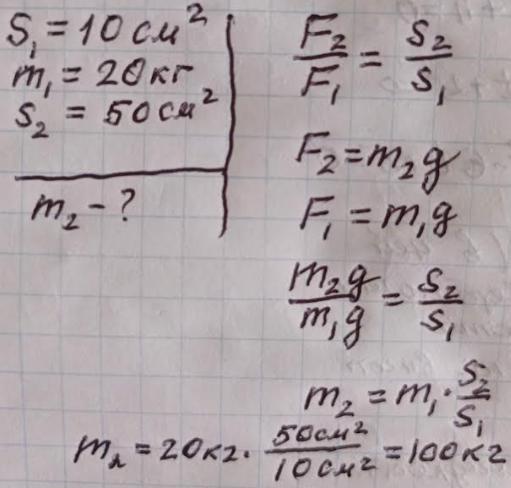 S₁ = 10 см²
m₁ = 20 кг
S₂ = 50 см²
m₂ - ?
F₂/F₁ = S₂/S₁
F₂ = m₂g
F₁ = m₁g
m₂g/m₁g = S₂/S₁
m₂ = m₁ · S₂/S₁
m₂ = 20 кг · 50 см²/10 см² = 100 кг